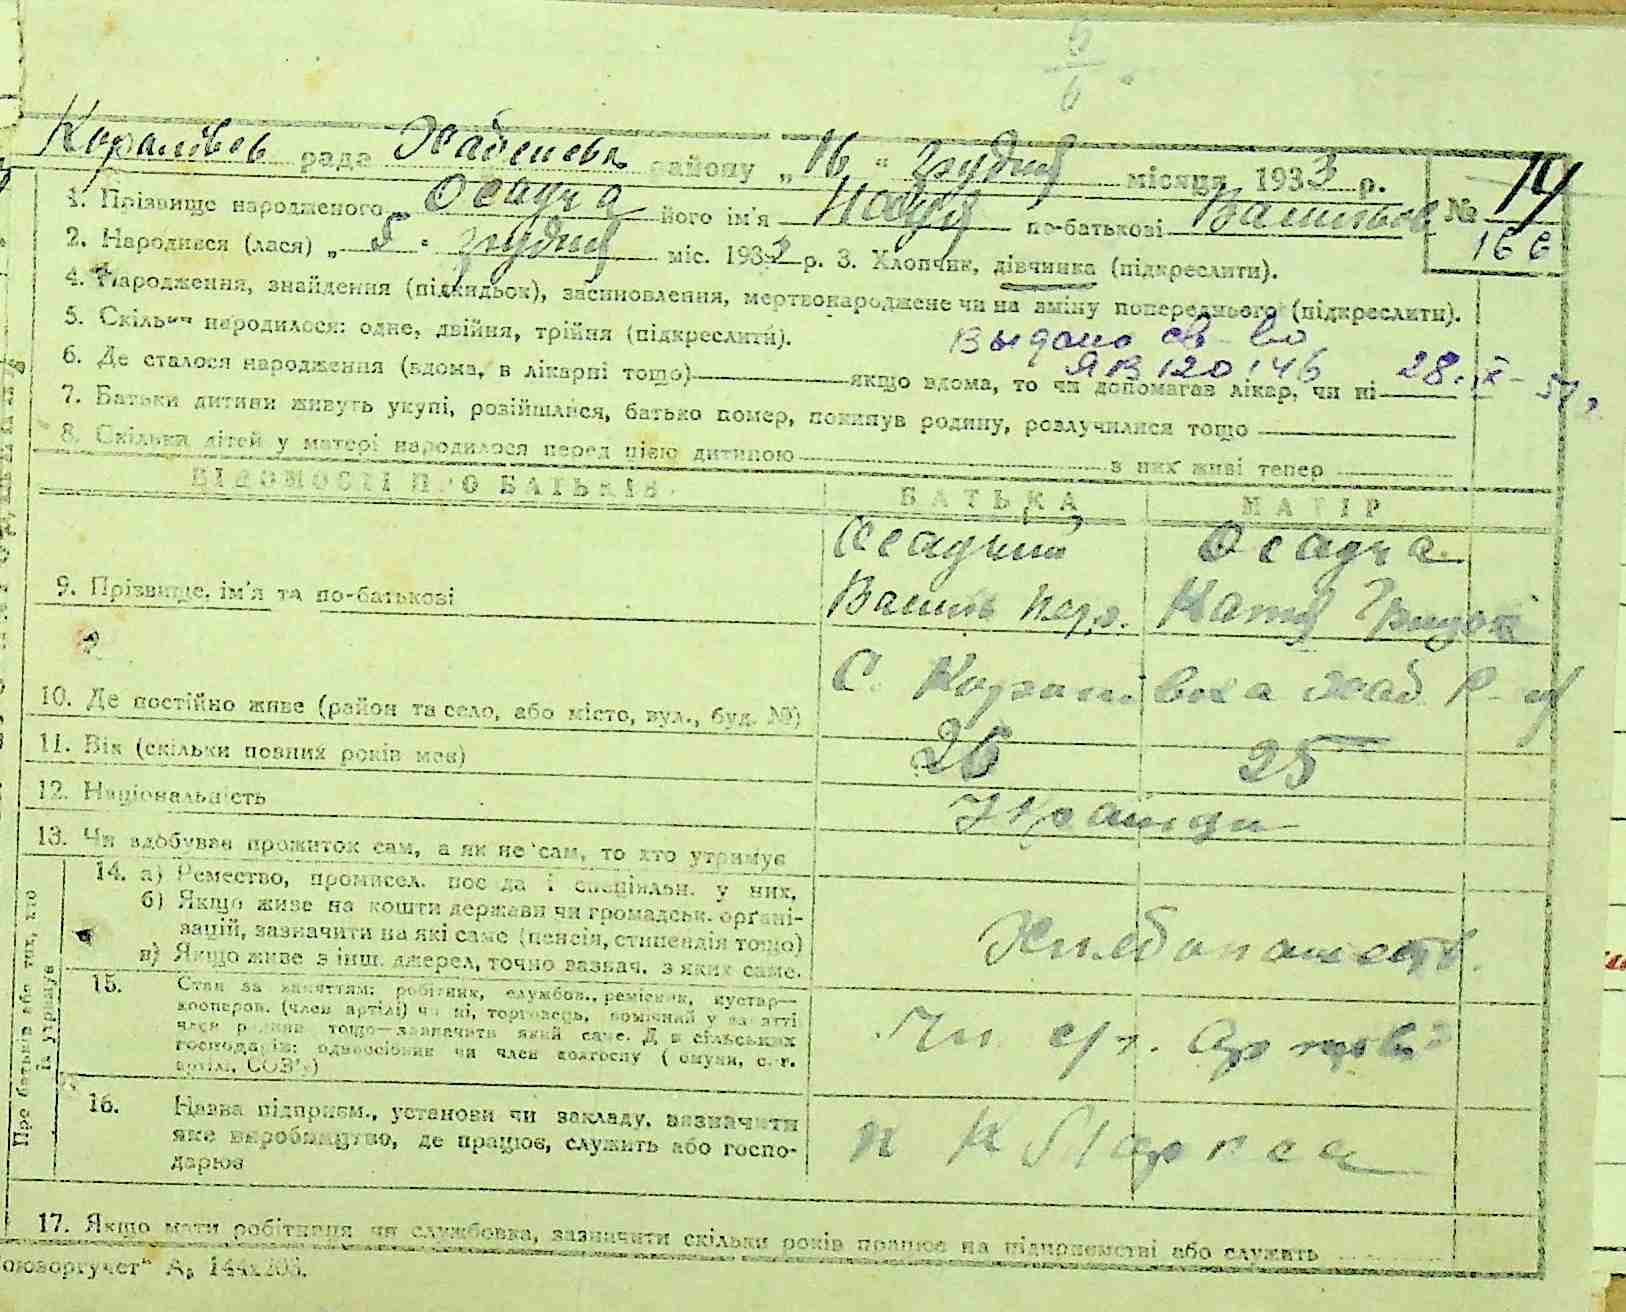 6
6
рада Хабенськ району „16“ грудня місяця 1933 р.
1. Прізвище народженого Осадча його ім'я Надія по-батькові Василівна № 14
166
2. Народився (лася) „5“ грудня міс. 1933 р. 3. Хлопчик, дівчинка (підкреслити).
4. Народження, знайдення (підкидьок), засиновлення, мертвонароджене чи на зміну попереднього (підкреслити).
5. Скільки народилося: одне, двійня, трійня (підкреслити).
Выдано св-во
ЯВ 120146 28.X-57,
6. Де сталося народження (вдома, в лікарні тощо) якщо вдома, то чи допомагав лікар, чи ні
7. Батьки дитини живуть укупі, розійшлися, батько помер, покинув родину, розлучилися тощо
8. Скільки дітей у матері народилося перед цією дитиною з них живі тепер
ВІДОМОСТІ ПРО БАТЬКІВ. БАТЬКА МАТІР
Осадчий Осадча
9. Прізвище, ім'я та по-батькові Василь Катя Григор
10. Де постійно живе (район та село, або місто, вул., буд. №) С. Хаб. Р-н
11. Вік (скільки повних років має) 26 25
12. Національність Українци
13. Чи здобуває прожиток сам, а як не сам, то хто утримує
Про батьків або тих, хто їх утримує
14. а) Ремество, промисел, посада і спеціяльн. у них.
б) Якщо живе на кошти держави чи громадськ. орґані-
зацій, зазначити на які саме (пенсія, стипендія тощо)
в) Якщо живе з інш. джерел, точно зазнач. з яких саме.
Хлібопашеств.
15. Стан за заняттям: робітник, службов., ремісник, кустар—
кооперов. (член артілі) чи ні, торговець, помічний у занятті
член родини тощо—зазначити який саме. Для сільських
господарів: одноосібник чи член колгоспу (комуни, с.-г.
артілі, СОЗ'у)
Чл. с/г. артілі
16. Назва підприєм., установи чи закладу, зазначити
яке виробництво, де працює, служить або госпо-
дарює
К Маркса
17. Якщо мати робітниця чи службовка, зазначити скільки років працює на підприємстві або служить
оюзоргучет“ А₅ 144х203.